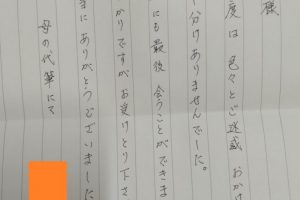 様
度は 色々とご迷惑 おかけ
分けありませんでした。
にも最後 会うことができま
かりですが お受けとり下さ
にありがとうございました
母の代筆にて